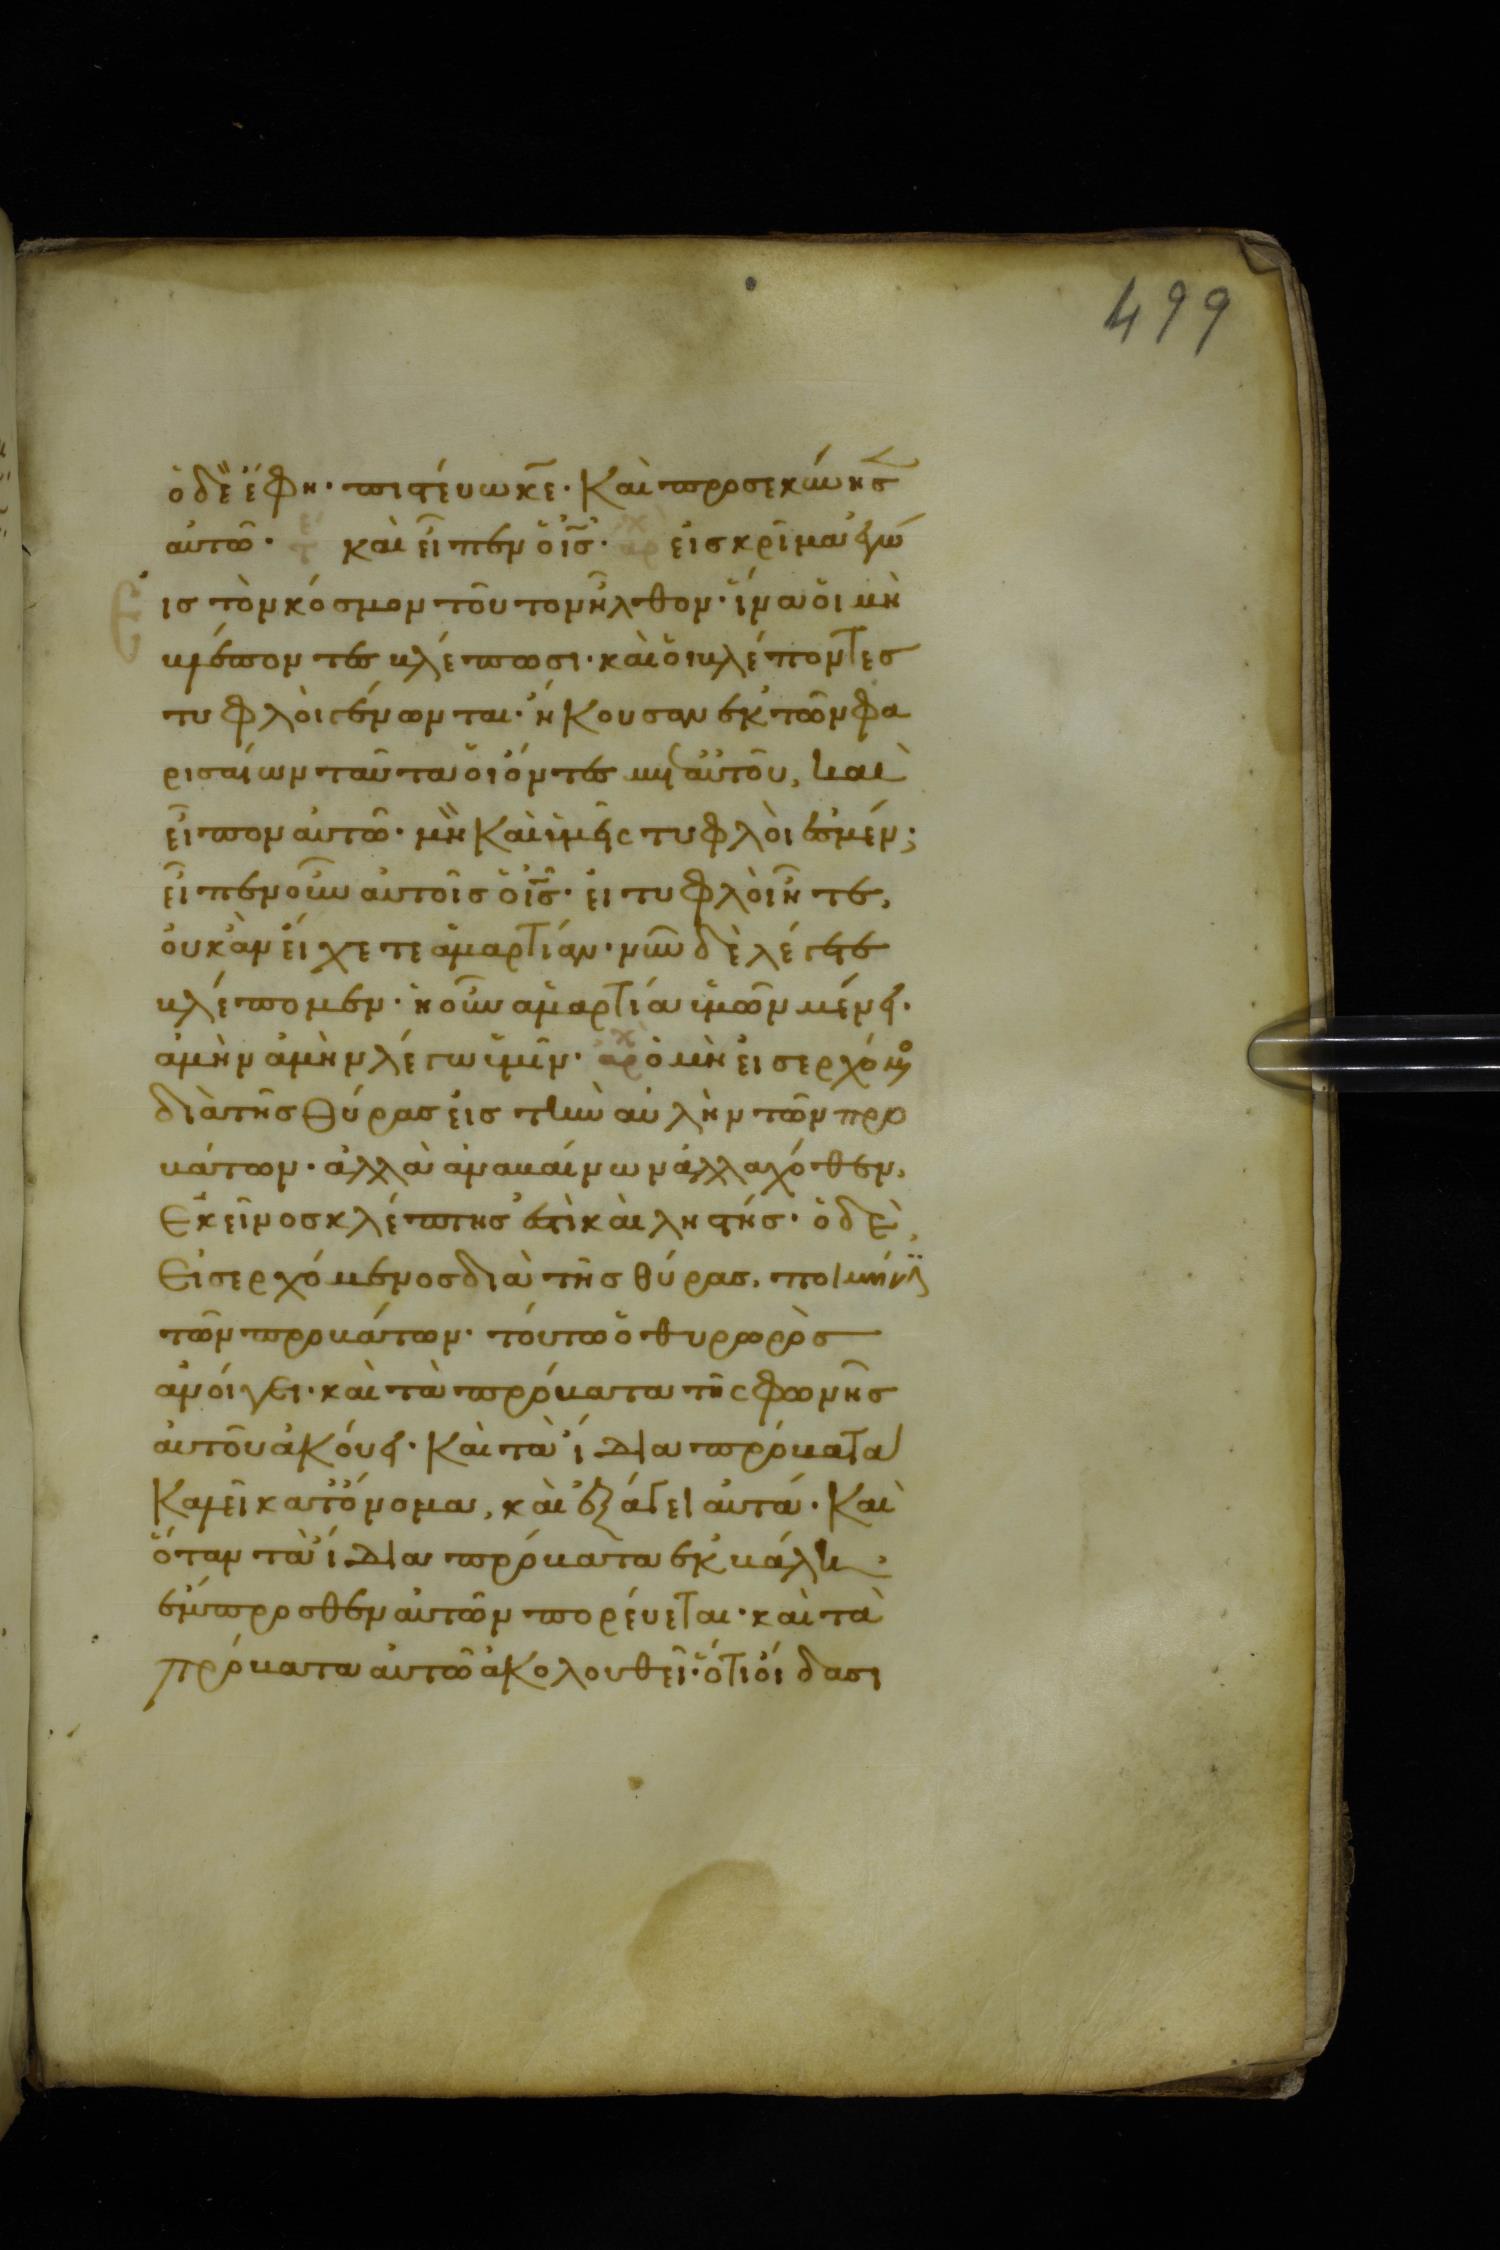 499
ὁ δὲ ἔφη· πιστεύω κε̅· καὶ προσεκύνησ
αὐτῶ· καὶ εἶπεν ὁ ισ̅· εἰσ κρῖμα ἐγὼ
εἰσ τὸν κόσμον τοῦτον ἦλθον· ἵνα οἱ μὴ
βλέποντεσ βλέπωσι· καὶ οἱ βλέποντεσ
τυφλοὶ γένωνται· ἤκουσαν ἐκ τῶν φα
ρισαίων ταῦτα οἱ ὄντεσ μετ αὐτοῦ, καὶ
εἶπον αὐτῶ· μὴ καὶ ἡμεῖς τυφλοὶ ἐσμέν;
εἶπεν οὖν αὐτοῖσ ὁ ισ̅· εἰ τυφλοὶ ἦτε,
οὐκ ἂν εἴχετε ἁμαρτίαν· νῦν δὲ λέγετε
βλέπομεν· ἡ οὖν ἁμαρτία ὑμῶν μένει·
ἀμὴν ἀμὴν λέγω ὑμῖν· αρχ ὁ μὴ εἰσερχόμενο
διὰ τῆσ θύρασ εἰσ τὴν αὐλὴν τῶν προ
βάτων· ἀλλὰ ἀναβαίνων ἀλλαχόθεν,
ἐκεῖνοσ κλέπτησ ἐστὶ καὶ ληστήσ· ὁ δὲ
εἰσερχόμενοσ διὰ τῆσ θύρασ, ποιμήν ἐστι
τῶν προβάτων· τούτω ὁ θυρωρὸσ
ἀνοίγει· καὶ τὰ πρόβατα τῆς φωνῆσ
αὐτοῦ ἀκούει· καὶ τὰ ἴδια πρόβατα
καλεῖ κατ ὄνομα, καὶ ἐξάγει αὐτά· καὶ
ὅταν τὰ ἴδια πρόβατα ἐκβάλη·
ἔμπροσθεν αὐτῶν πορεύεται· καὶ τὰ
πρόβατα αὐτῶ ἀκολουθεῖ· ὅτι οἴδασι